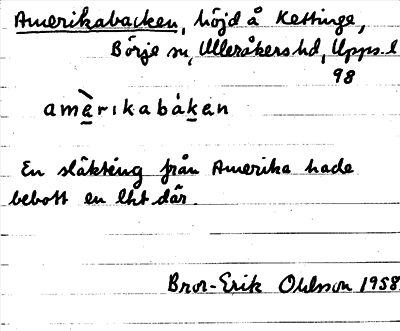 Amerikabacken, höjd å Kettinge,
Börje sn, Ulleråkers hd, Upps. l
98
amèrikabákan
En släkting från Amerika hade
bebott en lht där.
Bror-Erik Ohlsson 1958